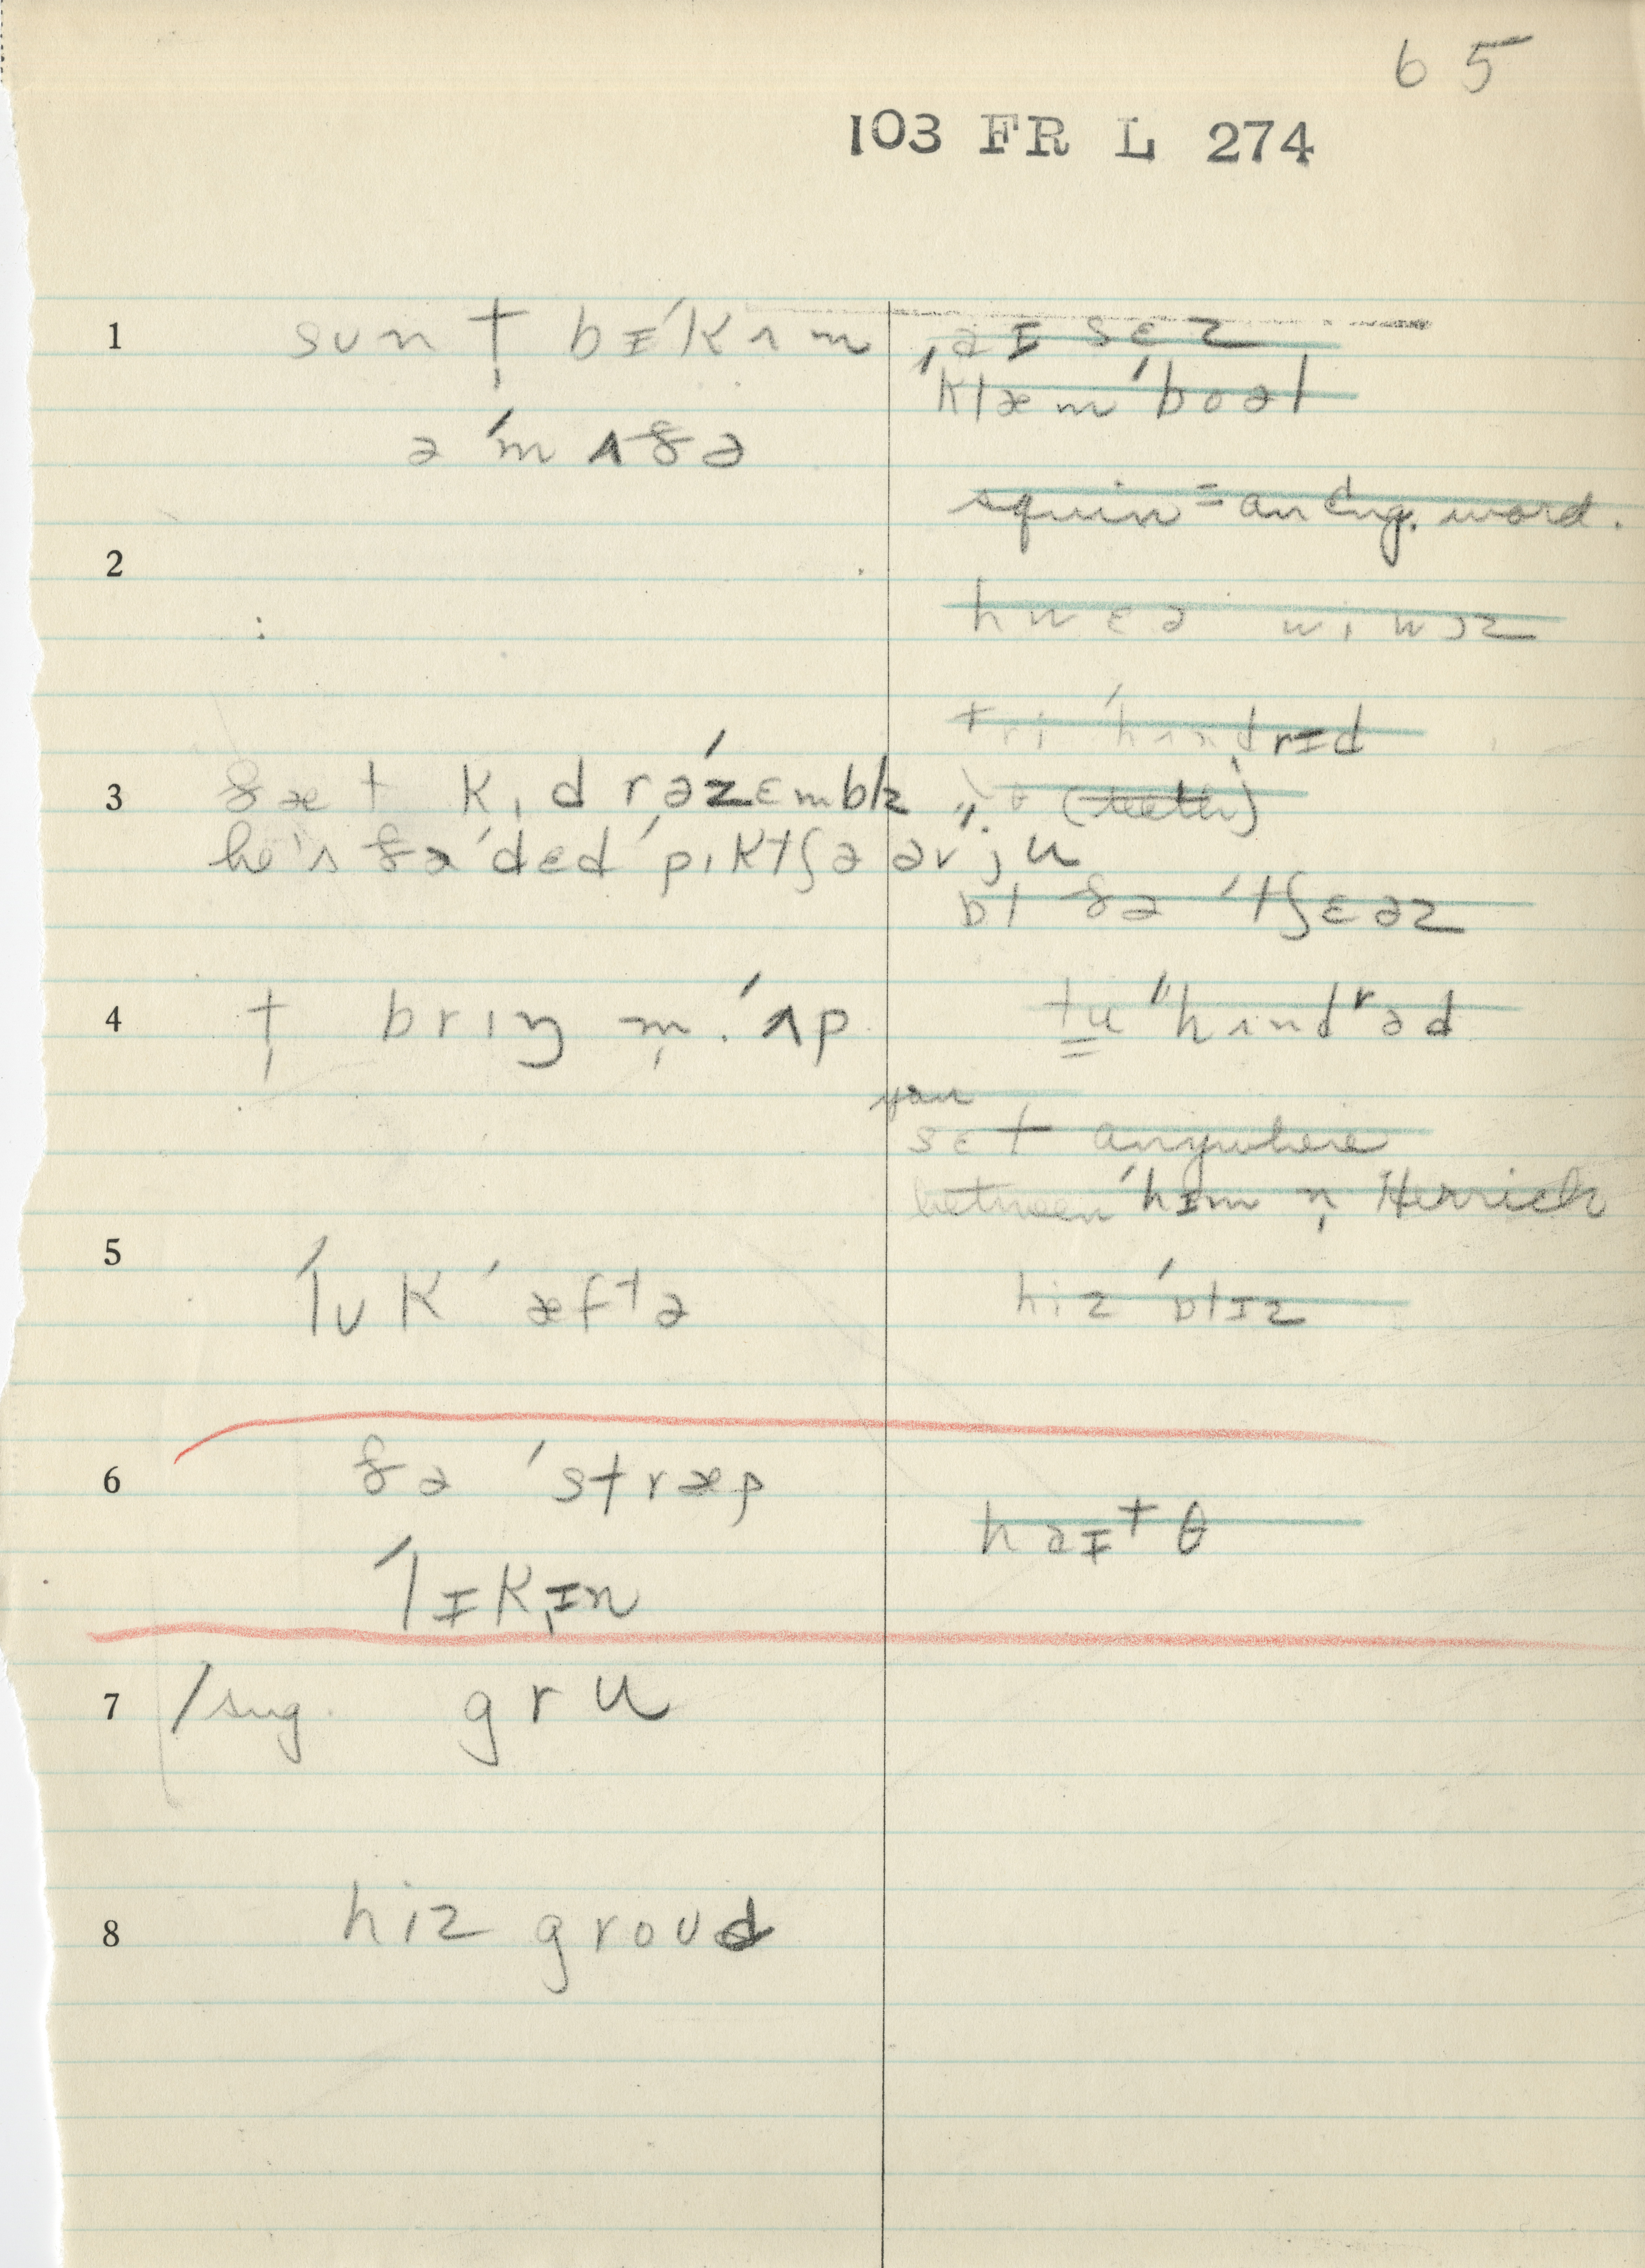 65
103 FR L 274
1
sʊn tˌ bɪˊkʌm
ə ˊmʌðə
ˌaɪ sɛz
ˈklæmˊboəl
squin = an Eng. word.
2
hwɛə wɪwəz
tri ˊhʌndrɪd
3 ðæt kɪd rəˊzɛmblz
(teeth)
he's ðəˊdɛd ˊpɪktʃə əv ju
bɪ ðə ˊtʃɛəz
4 tˌ brɪŋ mˌ ˊʌp
tu "hʌndrəd
you
sɛt anywhere
between ˊhɪm n̩ Herrick
5
ˊlʊk ˊæftə
hɪz ˊblɪz
6 ðə ˊstræp
haɪtθ
ˊlɪkɪn
7 /sug. gru
8 hiz groʊd